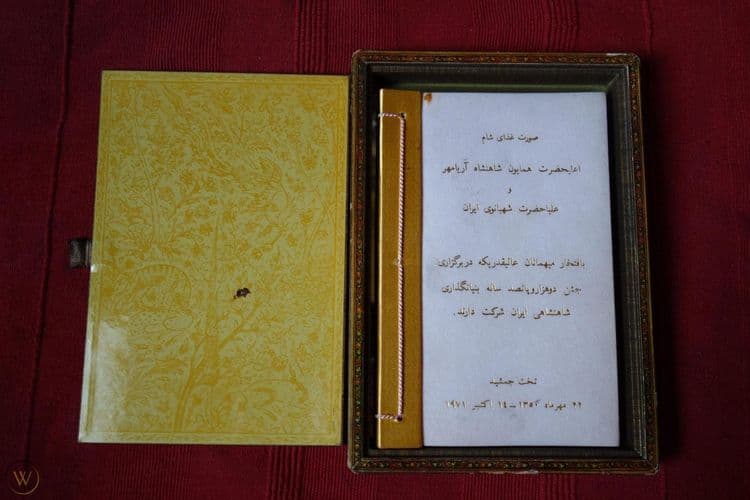 صورت غذای شام
اعلیحضرت همایون شاهنشاه آریامهر
و
علیاحضرت شهبانوی ایران
بافتخار میهمانان عالیقدریکه در برگزاری
جشن دوهزار و پانصد ساله بنیانگذاری
شاهنشاهی ایران شرکت دارند.
تخت جمشید
۲۲ مهرماه ۱۳۵۰ – ١٤ اکتبر ۱۹۷۱
W